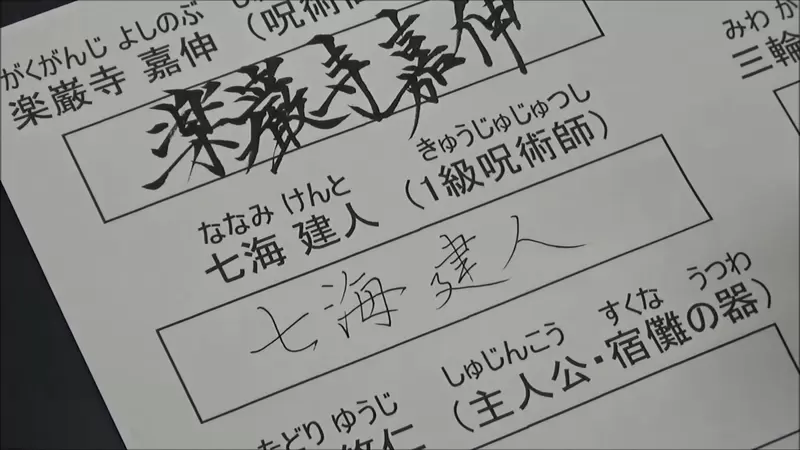 がくがんじ よしのぶ
楽巌寺 嘉伸 (呪術
楽巌寺嘉伸
みわ
三輪
ななみ けんと きゅうじゅじゅつし
七海 建人 (1級呪術師)
七海建人
たどり ゆうじ しゅじんこう すくな うつわ
悠仁 (主人公・宿儺の器)